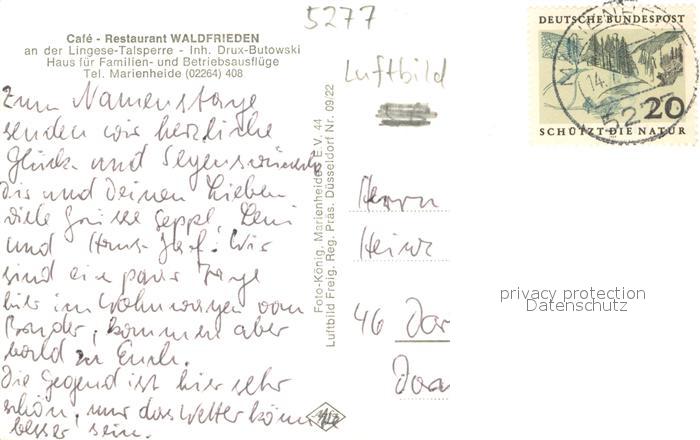 5277
Café - Restaurant WALDFRIEDEN
an der Lingese-Talsperre - Inh. Drux-Butowski
Haus für Familien- und Betriebsausflüge
Tel. Marienheide (02264) 408
Luftbild
Zum Namenstage
senden wir herzliche
Glück- und Segenswünsche
Dir und Deinen Lieben
viele Grüsse Seppl, Leni
und Hans-Josef. Wir
sind ein paar Tage
hier im Wohnwagen vom
Bruder, kommen aber
bald zu Euch.
Die Gegend ist hier sehr
schön, nur das Wetter könnte
besser sein.
Foto-König, Marienheide E.V. 44
Luftbild Freig. Reg. Präs. Düsseldorf Nr. 09/22
DEUTSCHE BUNDESPOST
20
SCHÜTZT DIE NATUR
Herrn
Heinr
46 Dor
privacy protection
Datenschutz